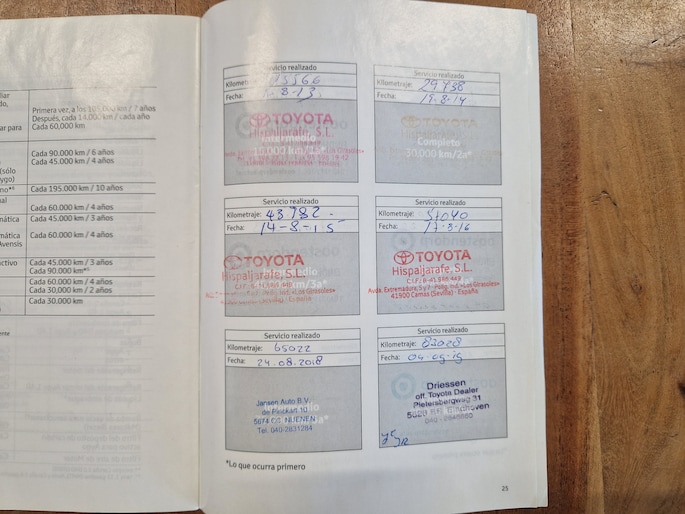 Primera vez, a los 105.000 km / 7 años
Después, cada 14.000 km / cada año
Cada 60,000 km
Cada 90.000 km / 6 años
Cada 45.000 km / 4 años
(sólo
Cada 195.000 km / 10 años
Cada 60.000 km / 4 años
Cada 45.000 km / 3 años
Cada 60.000 km / 4 años
Avensis
Cada 45.000 km / 3 años
Cada 90.000 km
Cada 60.000 km / 4 años
Cada 30,000 km / 2 años
Cada 30.000 km
Servicio realizado
Kilometraje: 15566
Fecha: 8-13
TOYOTA
Hispaljarafe, S.L.
Intermedio
Servicio realizado
Kilometraje: 29438
Fecha: 19-8-14
TOYOTA
Hispaljarafe, S.L.
Completo
30.000 km/2a*
Servicio realizado
Kilometraje: 43782
Fecha: 14-8-15
TOYOTA
Hispaljarafe, S.L.
(Sevilla) - España
Servicio realizado
Kilometraje: 51040
Fecha: 17-8-16
TOYOTA
Hispaljarafe, S.L.
C.I.F.: B-41.988.449
Avda. Extremadura, 5 y 7 - Polig. Ind. «Los Girasoles»
41900 Camas (Sevilla) - España
Servicio realizado
Kilometraje: 65022
Fecha: 24.08.2018
Jansen Auto B.V.
de Pinckart 10
5674 CC NUENEN
Tel. 040-2831284
Servicio realizado
Kilometraje: 82028
Fecha: 04-09-19
Driessen
off. Toyota Dealer
Pietersbergweg 31
Eindhoven
*Lo que ocurra primero
25